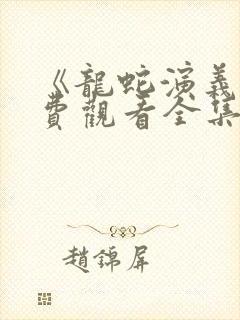 《龍蛇演義
費觀看全集
趙錦屏